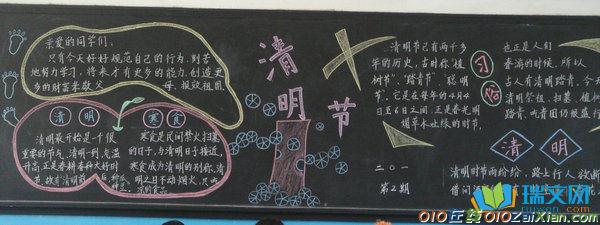 亲爱的同学们，
只有今天好好规范自己的行为，刻苦
地努力学习，将来才有更多的能力，创造更
多的财富来敬父母，报效祖国。
清明
清明最开始是一个很
重要的节气，清明一到，气温
升高，正是春耕春种大好时
寒食
寒食是民间禁火扫墓
的日子，与清明日子接近，
寒食成为清明的别称，清
明之日不动烟火，只吃
凉的食品
清明节
清明节已有两千多
年的历史，古时称"植
树节""踏青节""聪明
节"。它是在每年的4月4
日至6日之间，正是春光明
媚草木吐绿的时节，
二〇一
第2期
习俗
也正是人们
春游的时候，所以
古人有清明踏青，今天
清明祭祖、扫墓、植树
踏青、吹青团仍被盛行
清明
清明时节雨纷纷，路上行人欲断
借问
瑞文网
010在线010ZaiXian.com